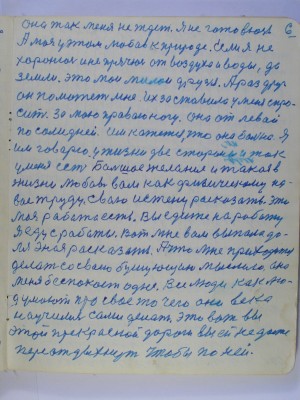 6
она так меня не ждет. Я не готовюсь
А моя у том любов к природе. Если я не
хоронюсь и не прячюсь от воздуха и воды, до
земли. это мои милои друзя. А раз друг
он поможет мне Их заставило у меня спро-
сить. За мою правою ногу. Она от левой
по солидней. Им кажется, что она болна. Я
им говорю, у жизни две стороны и так
у меня есть Большое желания и такая в
жизни любов вам как физическому
труду, сваю истену рассказать. Это
моя работа есть. Вы едите на работу
Я еду с работы. Вот мне вам выпала до-
ля э ня рассказать. А что мне приходится
делать со своею мыслию. она
меня беспокоет одно. Все люди как лю-
ди у могут про свае то чего они века
научились сами делать. Это вот вы
этой прекрасной дороги вы ей не даете
чтобы по ней.